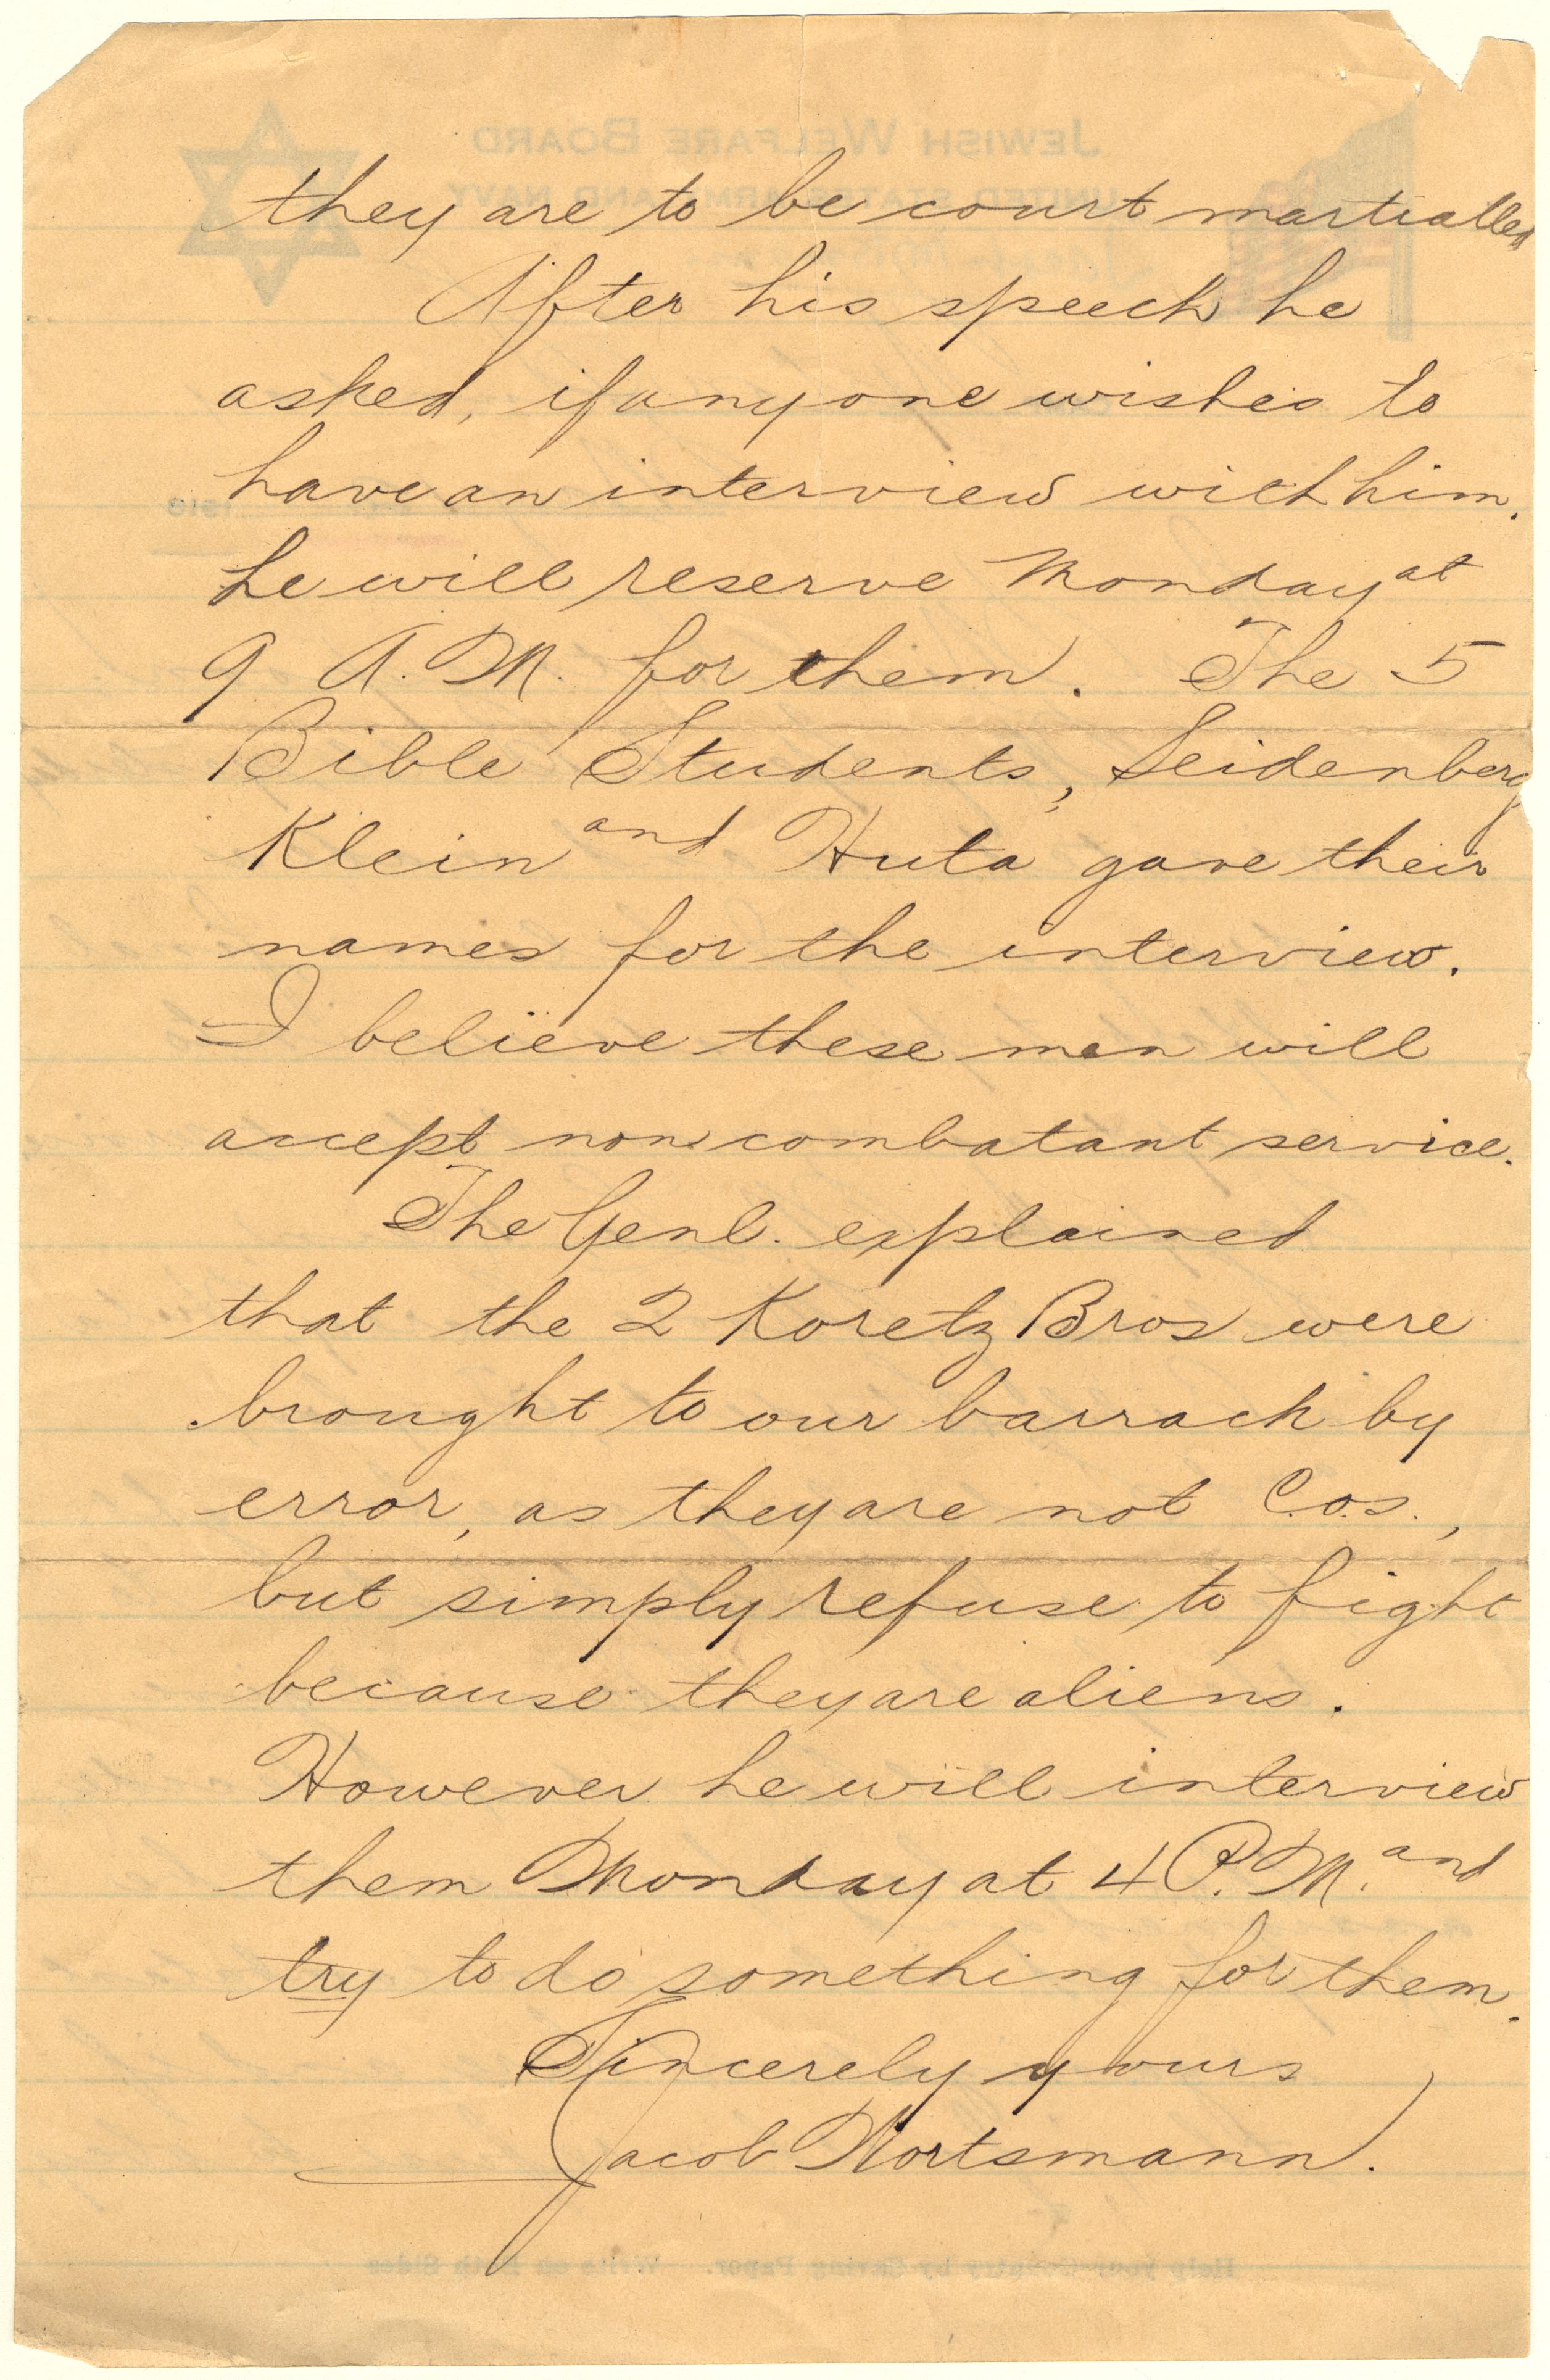 they are to be court martialled
After his speech he
asked, if anyone wishes to
have an interview with him.
he will reserve Monday at
9 A.M. for them. The 5
Bible Students, Seidenberg
Klein and Huta gave their
names for the interview.
I believe these men will
accept non combatant service.
The Genl. explained
that the 2 Koretz Bros were
brought to our barrack by
error, as they are not C.O.s.,
but simply refuse to fight
because they are aliens.
However he will interview
them Monday at 4 P.M. and
try to do something for them.
Sincerely yours
Jacob Wortsmann.